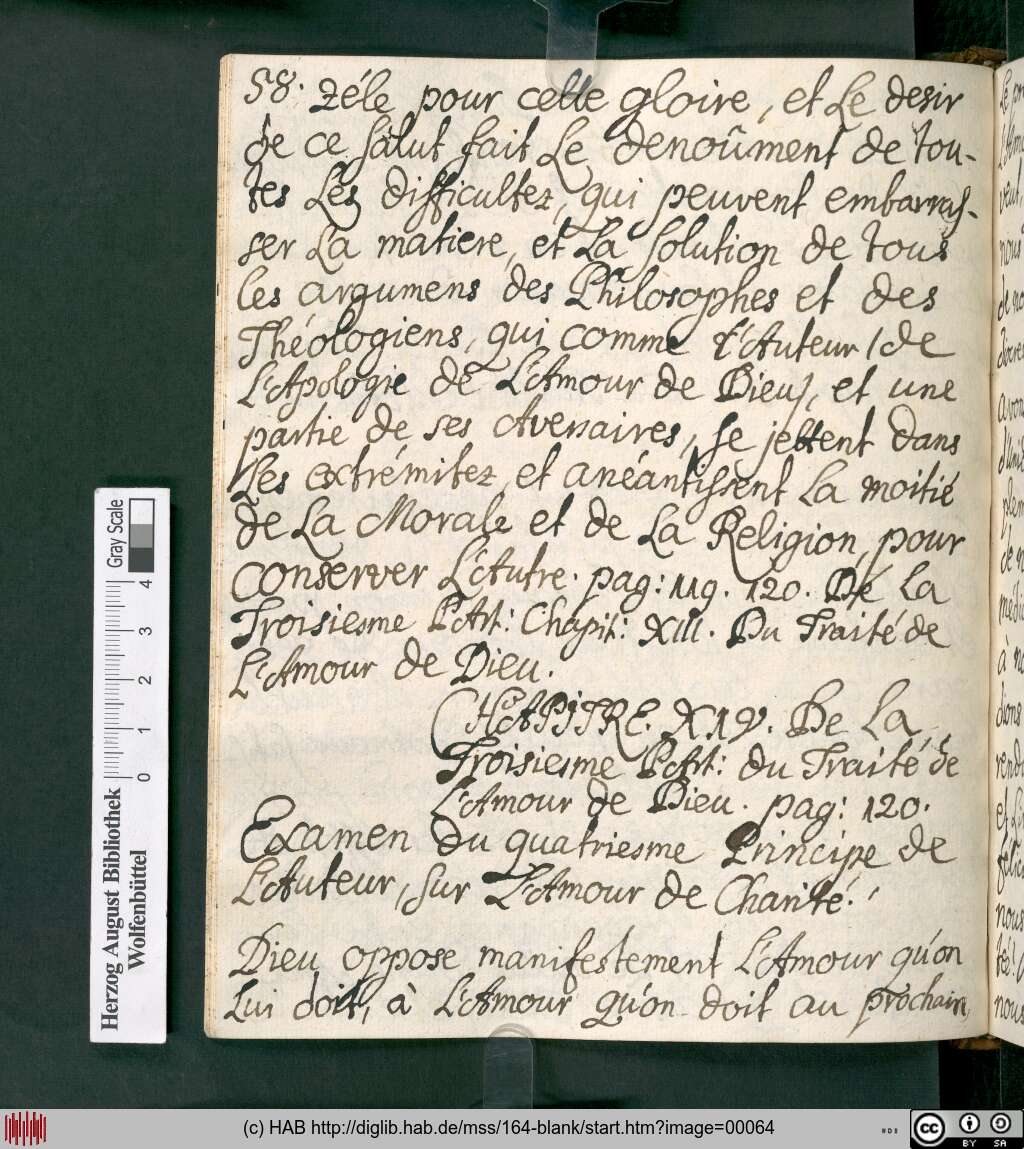 58. zéle pour cette gloire, et Le desir
de ce salut fait Le denoûment de tou-
tes Les difficultez, qui peuvent embarras-
ser La matiere, et La solution de tous
les argumens des Philosophes et des
Théologiens, qui comme L'Auteur (de
L'Apologie de L'Amour de Dieu), et une
partie de ses Aversaires, se jettent dans
Les extrémitez, et anéantissent La moitié
de La Morale et de La Religion, pour
conserver L'Autre. pag: 119. 120. De La
Troisiesme PArt: Chapit: XIII. Du Traité de
L'Amour de Dieu.
CHAPITRE. XIV. De La
Troisiesme PArt: du Traité de
L'Amour de Dieu. pag: 120.
Examen du quatriesme Principe de
L'Auteur, sur L'Amour de Charité.
Dieu oppose manifestement L'Amour qu'on
Lui doit, à L'Amour qu'on doit au prochain,
Gray Scale
4
3
2
1
0
Herzog August Bibliothek
Wolfenbüttel
(c) HAB http://diglib.hab.de/mss/164-blank/start.htm?image=00064
cc BY SA